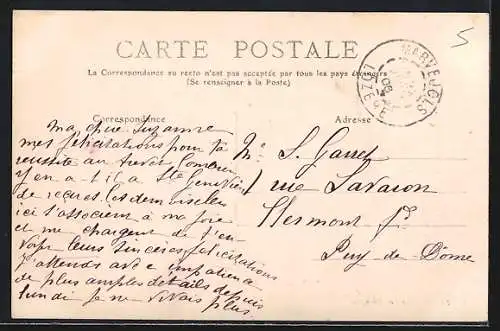 5
CARTE POSTALE
La Correspondance au recto n'est pas acceptée par tous les pays étrangers
(Se renseigner à la Poste)
MARVEJOLS
LOZERE
Correspondance
Adresse
Ma chère Suzanne
mes félicitations pour ta
réussite au brevet
y en a-t-il à Ste Geneviève
de reçues. Les demoiselles
ici s'associent à ma joie
et me chargent de t'en-
voyer leurs sincères félicitations
J'attends avec impatience
de plus amples détails depuis
lundi je ne vivais plus.
S. Garret
1 rue Savaron
Clermont Fd
Puy-de-Dôme